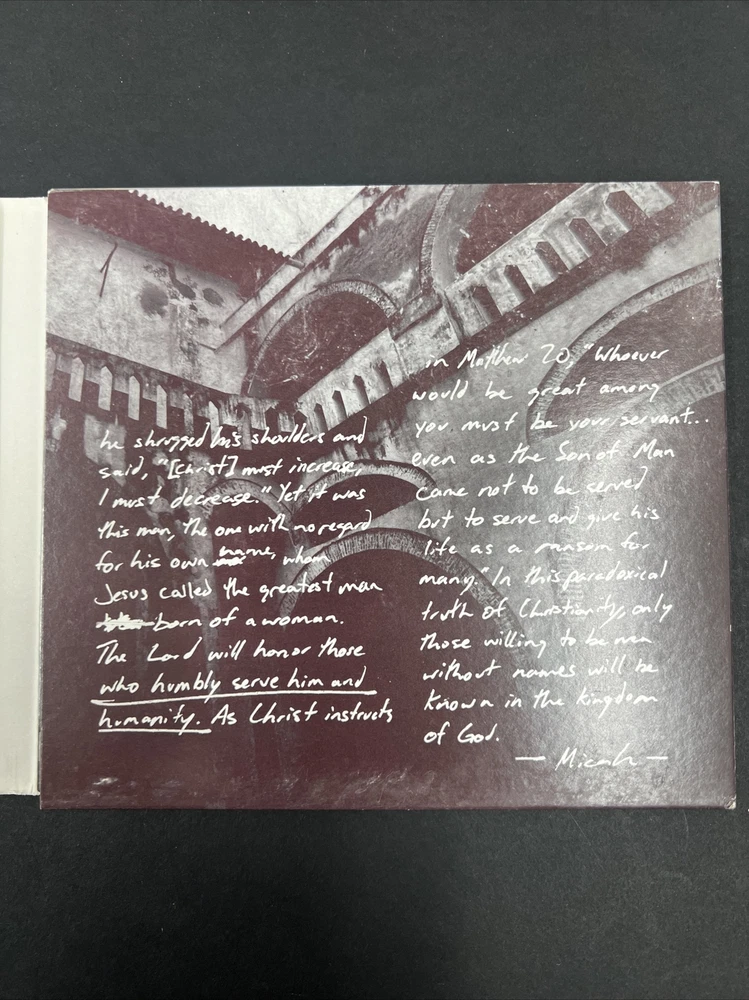 he shrugged his shoulders and
said, "[Christ] must increase,
I must decrease." Yet it was
this man, the one with no regard
for his own name, whom
Jesus called the greatest man
born of a woman.
The Lord will honor those
who humbly serve him and
humanity. As Christ instructs
in Matthew 20, "Whoever
would be great among
you must be your servant...
even as the Son of Man
came not to be served
but to serve and give his
life as a ransom for
many." In this paradoxical
truth of Christianity, only
those willing to be men
without names will be
known in the kingdom
of God.
— Micah —